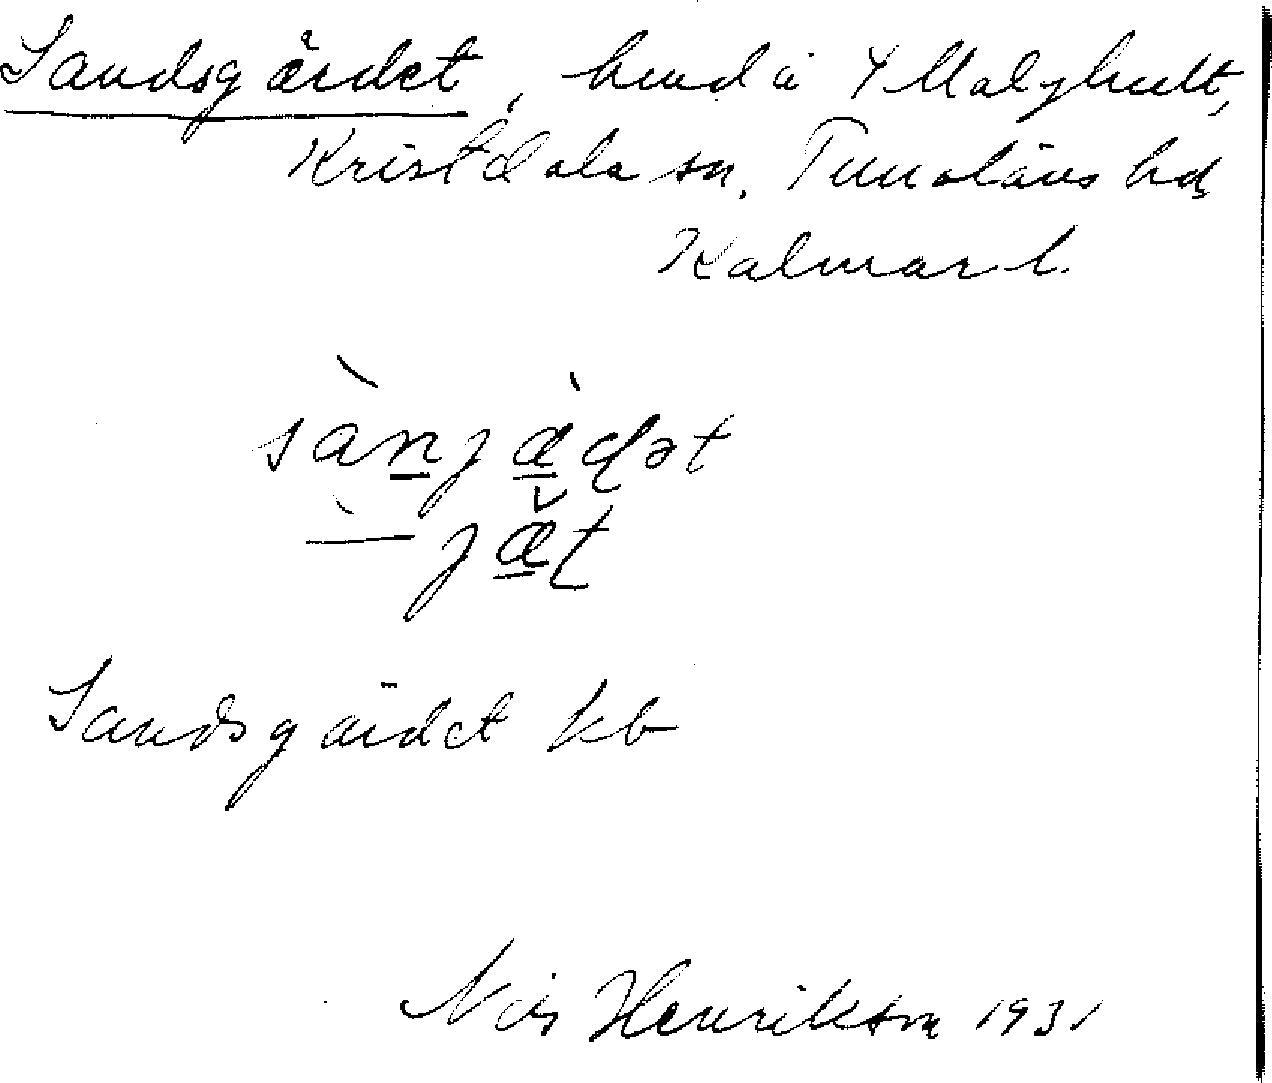 Sandsgärdet, hmd å Y Malghult,
Kristdala sn, Tunaläns hd,
Kalmar l.
sànjæ̀ḍət
ˋ— jæ̆ṭ
Sandsgärdet kb
Nils Henrikson 1931